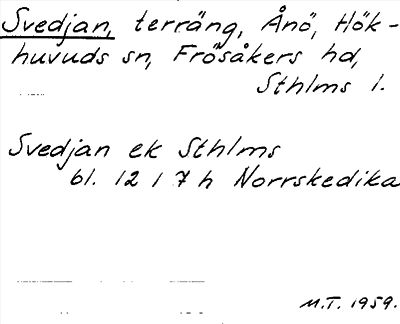 Svedjan, terräng, Ånö, Hök-
huvuds sn, Frösåkers hd,
Sthlms l.
Svedjan ek Sthlms
bl. 12 I 7 h Norrskedika
M.T. 1959.